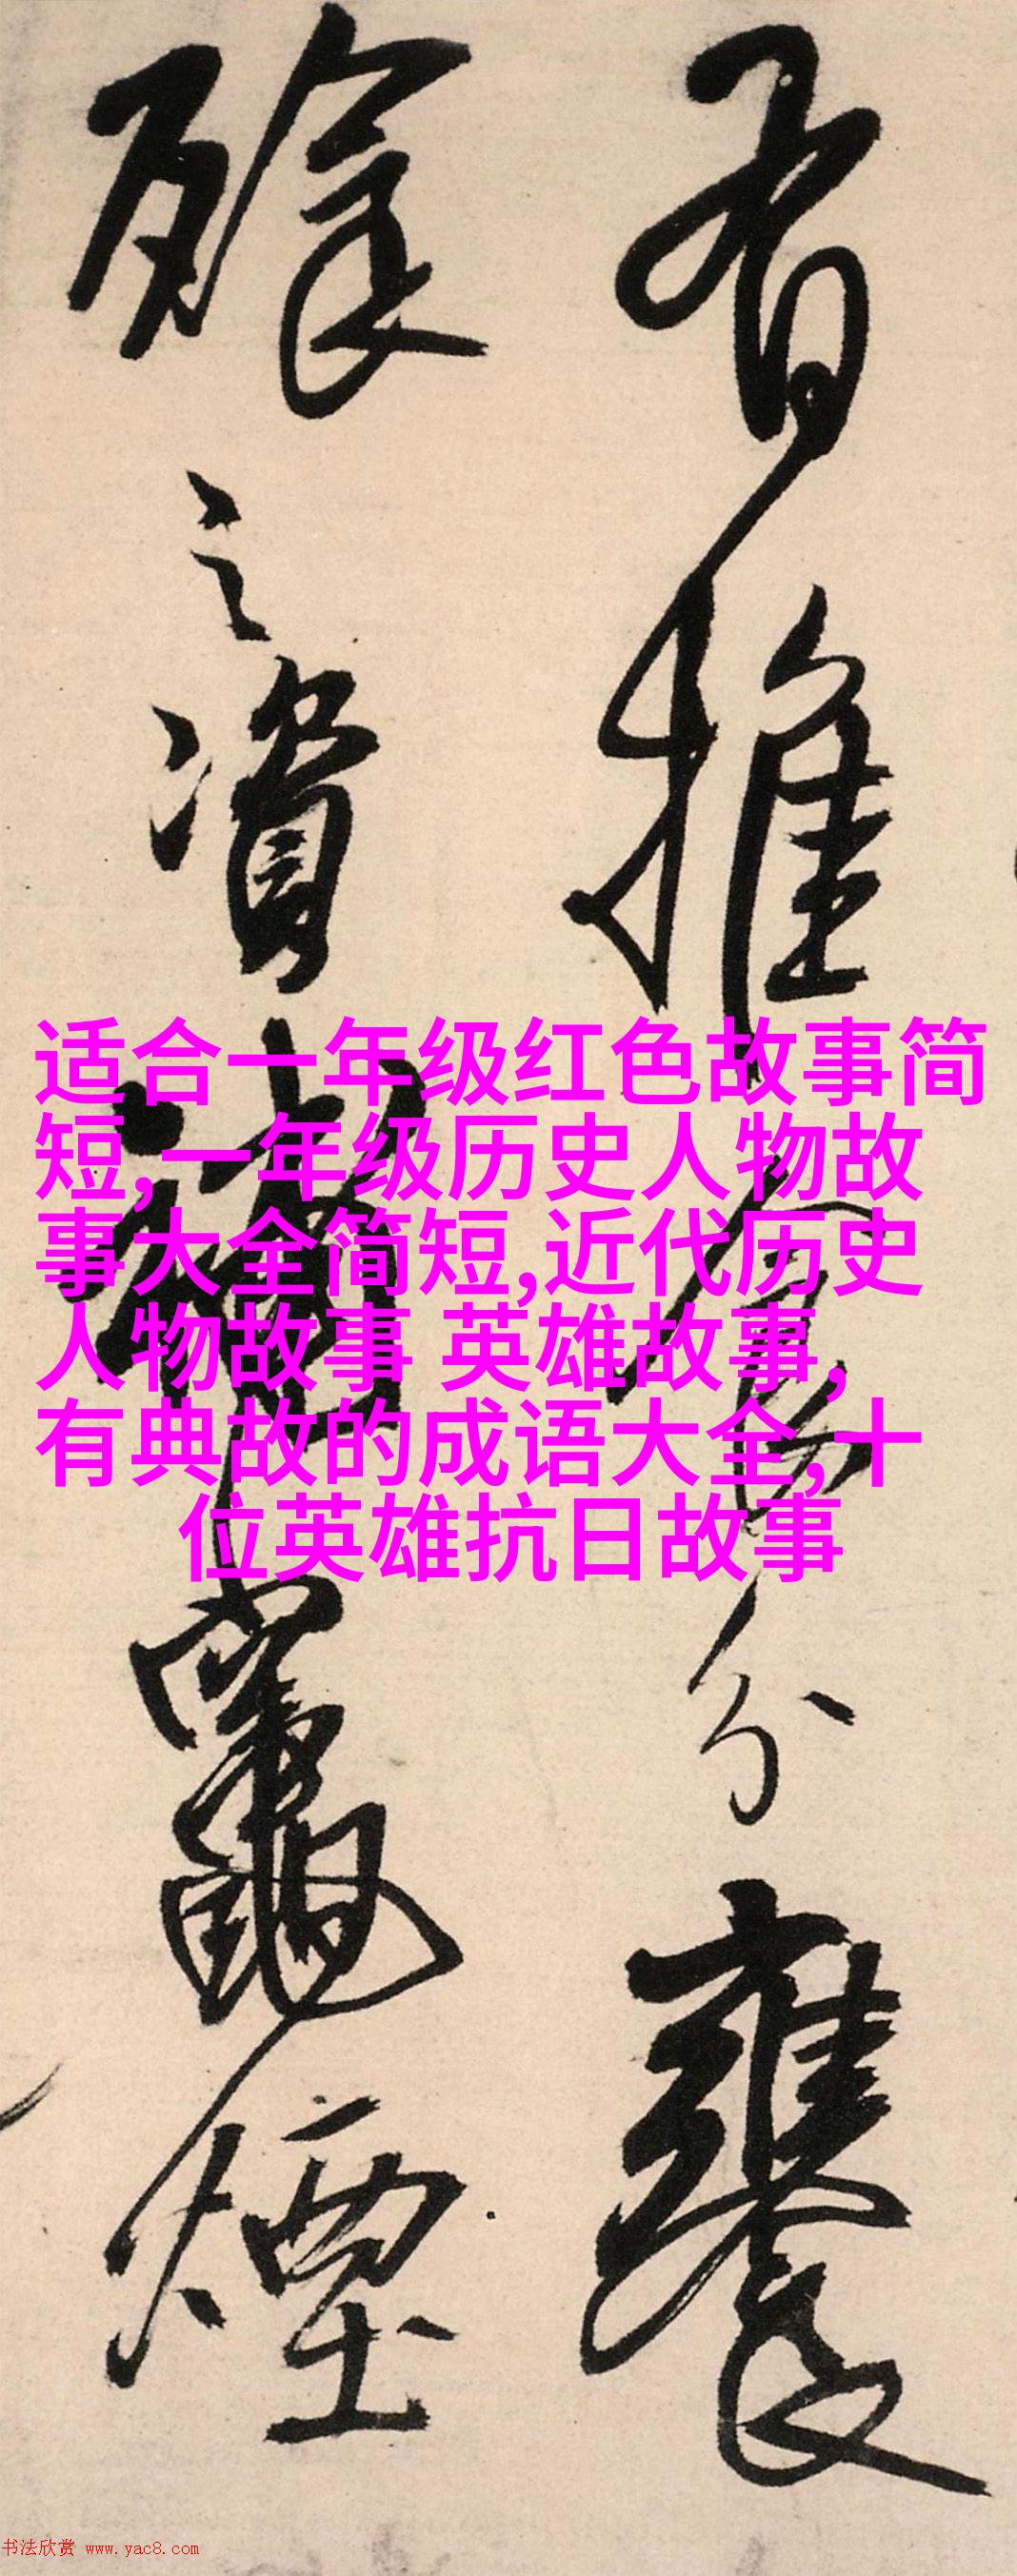 有推食分饔
之資竈煙
适合一年级红色故事简
短,一年级历史人物故
事大全简短,近代历史
人物故事 英雄故事,
有典故的成语大全,十
位英雄抗日故事
书法欣赏 www.yac8.com